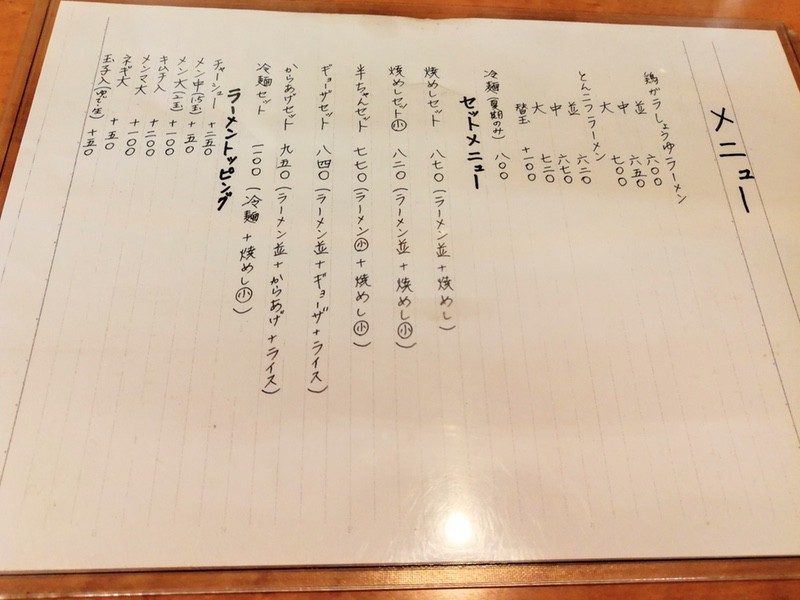 メニュー
鶏ガラしょうゆラーメン
並 六〇〇
中 六五〇
大 七〇〇
とんこつラーメン
並 六二〇
中 六七〇
大 七二〇
替玉 +一〇〇
冷麺(夏期のみ) 八〇〇
セットメニュー
焼めしセット 八七〇(ラーメン並+焼めし)
焼めしセット㊥小 八二〇(ラーメン並+焼めし小)
半ちゃんセット 七七〇(ラーメン小+焼めし小)
ギョーザセット 八四〇(ラーメン並+ギョーザ+ライス)
からあげセット 九五〇(ラーメン並+からあげ+ライス)
冷麺セット 一一〇〇(冷麺+焼めし小)
ラーメントッピング
チャーシュー +二五〇
メン中(1.5玉) +五〇
メン大(2玉) +一〇〇
キムチ入 +一〇〇
メンマ大 +二〇〇
ネギ大 +一〇〇
玉子入(兜で生) +五〇